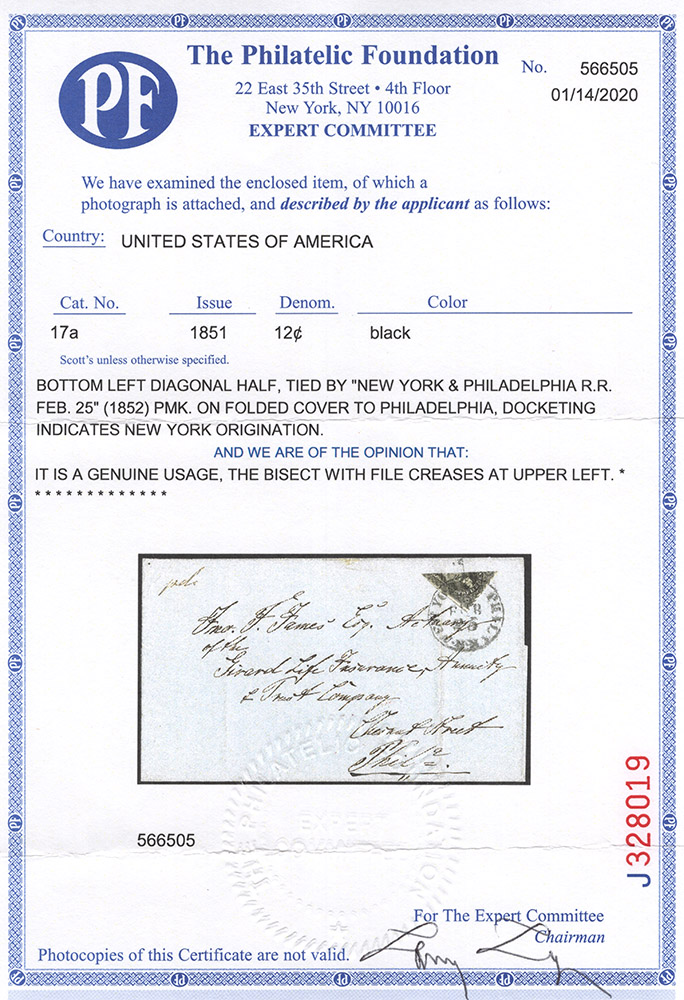 PF
The Philatelic Foundation
22 East 35th Street • 4th Floor
New York, NY 10016
EXPERT COMMITTEE
No. 566505
01/14/2020
We have examined the enclosed item, of which a
photograph is attached, and described by the applicant as follows:
Country: UNITED STATES OF AMERICA
Cat. No. Issue Denom. Color
17a 1851 12¢ black
Scott's unless otherwise specified.
BOTTOM LEFT DIAGONAL HALF, TIED BY "NEW YORK & PHILADELPHIA R.R.
FEB. 25" (1852) PMK. ON FOLDED COVER TO PHILADELPHIA, DOCKETING
INDICATES NEW YORK ORIGINATION.
AND WE ARE OF THE OPINION THAT:
IT IS A GENUINE USAGE, THE BISECT WITH FILE CREASES AT UPPER LEFT. *
* * * * * * * * * * * * *
FEB
Jno. F. James Esq. Actuary
of the
Girard Life Insurance, Annuity
& Trust Company
Chesnut Street
Phila.
566505
J328019
For The Expert Committee
Chairman
Photocopies of this Certificate are not valid.